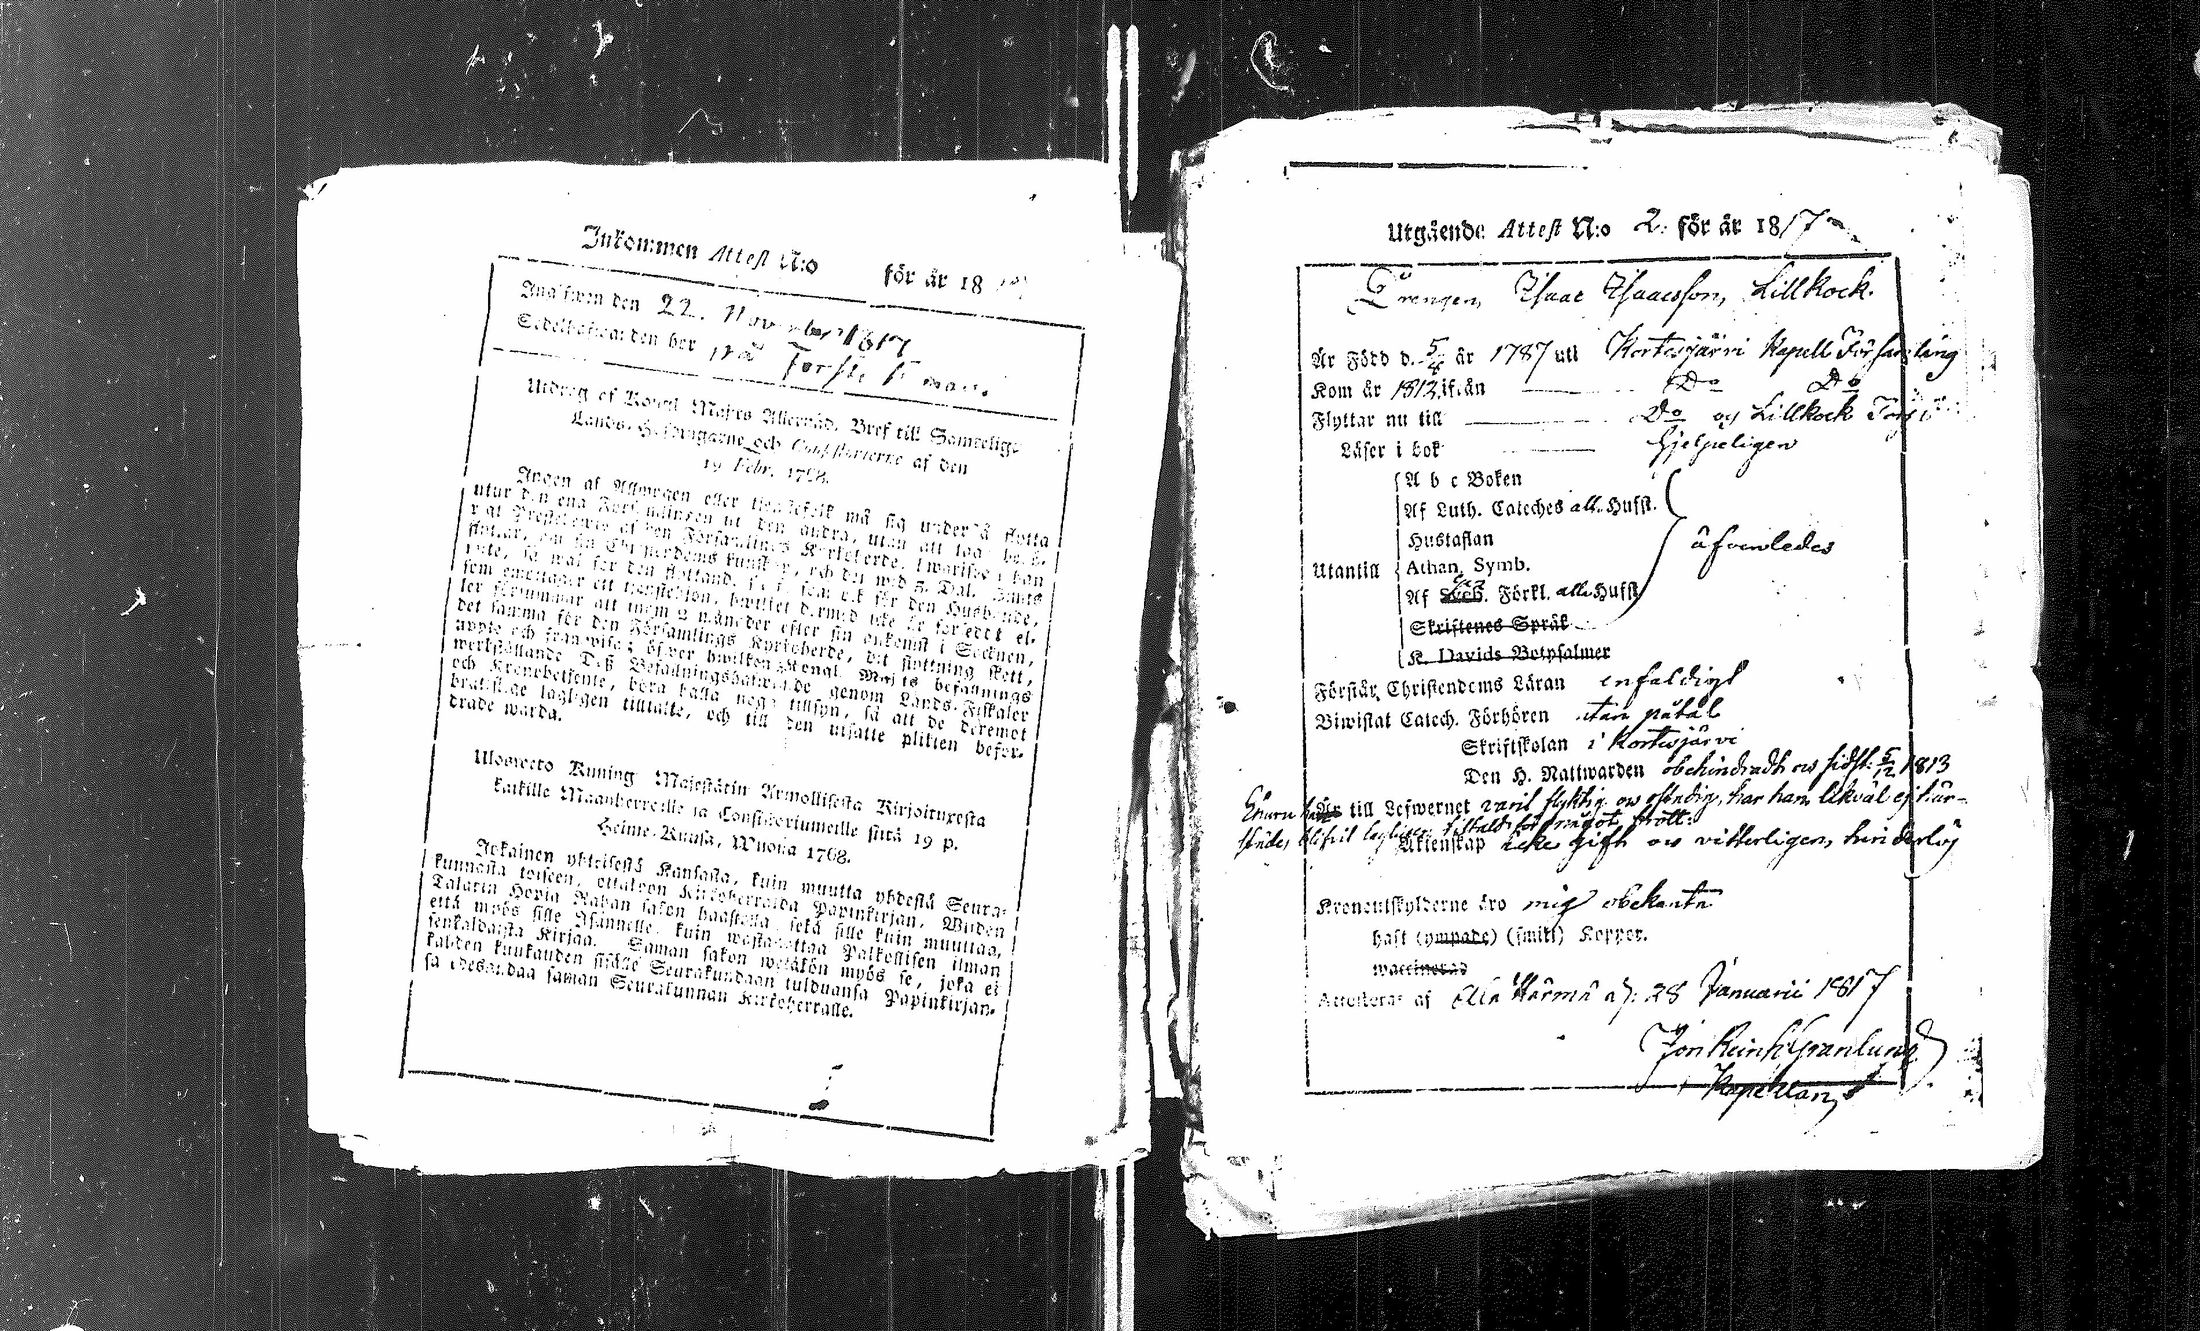 Inkommen Attest N:o för år 18
Angifwen den 22. November 1817
Sedelhafwanden bor på
Utdrag af Kongl. Maj:ts Allernåd. Bref till Samtelige
Lands-Höfdingarne och Consistorierne af den
19 Febr. 1768.
Ingen af Allmogen eller tienstefolk må sig understå flytta
utur den ena Församlingen til den andra, utan att taga
Prestebewis af den Församlings Kyrkoherde, hwarifrån han
flyttar, om sin Christendoms kunskap, och det wid 3. Dal. S:mts
wite, så wäl för den flyttande, som ock för den Husbonde,
som emottager ett tienstehjon, hwilket dermed icke är försedt el-
ler försummar att inom 2 månader efter sin ankomst i Socknen,
det samma för den Församlings Kyrkoherde, dit flyttning skett,
uppte och framwisa; öfwer hwilken Kongl. Maj:ts befallnings
werkställande Deß Befallningshafwande genom Lands-Fiskaler
och Kronobetjente, böra hålla noga tillsyn, så att de deremot
brottslige lagligen tilltalte, och till den utsatte plikten befor-
drade warda.
Ulosweto Kuning Majestätin Armollisesta Kirjoituxesta
kaikille Maanherroille ja Consistoriumeille siitä 19 p.
Helme-Kuusa, Wuona 1768.
Jokainen yhteisestä Kansasta, kuin muutta yhdestä Seura-
kunnasta toiseen, ottakoon Kirkoherralda Papinkirjan, Wiiden
Talarin Hopia Rahan sakon haastolla, sekä sille kuin muuttaa,
että myös sille Isännelle, kuin wastaanottaa Palkollisen ilman
senkaldaista Kirjaa. Saman sakon wetäkön myös se, joka ei
kahden kuukauden sisälle Seurakundaan tulduansa Papinkirjan-
sa edesandaa saman Seurakunnan Kirkoherralle.
Utgående Attest N:o 2. för år 1817
Drengen, Isaac Isaacsson, Lillkock.
Är Född d. 5/4 år 1787 uti Kortesjärvi Kapell Församling
Kom år 1812 ifrån Do Do
Flyttar nu till Do og Lillkock Torp
Läser i bok hjelpeligen
A b c Boken
Af Luth. Cateches alla Hufst.
Hustaflan
Utantill Athan. Symb. äfvenledes
Af Förkl. alla Hufst
Skriftenes Språk
K. Davids Botpsalmer
Förstår Christendoms Läran enfaldigt
Biwistat Catech. Förhören utan påtal
Skriftskolan i Kortesjärvi
Den H. Nattwarden obehindradt os sidst: 5/12 1813
Ehuru han till Lefwernet varit flyktig os ostadig, har han likväl ej här-
städes blifvit lagligen tilltald för något brott:
Äktenskap icke gift os vitterligen, hinderlös
Kronoutskylderne äro mig obekanta
haft (ympade) (smitt) Koppor.
waccinerad
Attesteras af Ala Härmä d: 28 Januarii 1817
Joh Reinh Granlund
Kapellan